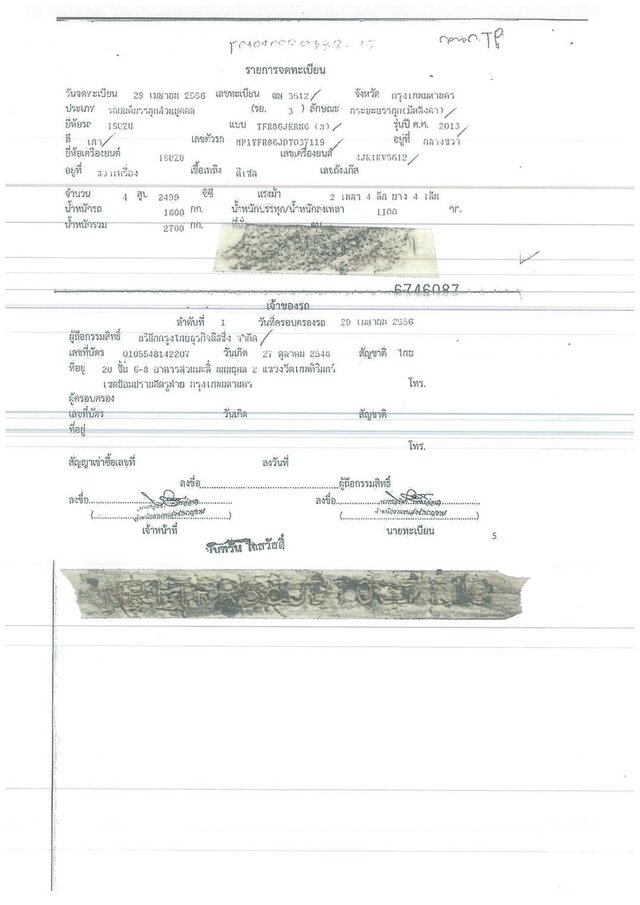 รายการจดทะเบียน
วันจดทะเบียน 29 เมษายน 2556 เลขทะเบียน 3512 จังหวัด กรุงเทพมหานคร
ประเภท รถยนต์บรรทุกส่วนบุคคล (รย. 3 ) ลักษณะ กระบะบรรทุก(มีหลังคา)
ยี่ห้อรถ ISUZU แบบ TFR86JERNG (ส) รุ่นปี ค.ศ. 2013
สี เทา เลขตัวรถ MP1TFR86JDT037119 อยู่ที่ กลางขวา
ยี่ห้อเครื่องยนต์ ISUZU เลขเครื่องยนต์ 4JK1KV5612
อยู่ที่ ขวาเครื่อง เชื้อเพลิง ดีเซล เลขถังแก๊ส
จำนวน 4 สูบ 2499 ซีซี แรงม้า 2 เพลา 4 ล้อ ยาง 4 เส้น
น้ำหนักรถ 1600 กก. น้ำหนักบรรทุก/น้ำหนักลงเพลา 1100 กก.
น้ำหนักรวม 2700 กก. ที่นั่ง คน
6746087
เจ้าของรถ
ลำดับที่ 1 วันที่ครอบครองรถ 29 เมษายน 2556
ผู้ถือกรรมสิทธิ์ บริษัทกรุงไทยธุรกิจลีสซิ่ง จำกัด
เลขที่บัตร 0105548142207 วันเกิด 27 ตุลาคม 2548 สัญชาติ ไทย
ที่อยู่ 20 ชั้น 6-8 อาคารสวนมะลิ ถนนยุคล 2 แขวงวัดเทพศิรินทร์
เขตป้อมปราบศัตรูพ่าย กรุงเทพมหานคร โทร.
ผู้ครอบครอง
เลขที่บัตร วันเกิด สัญชาติ
ที่อยู่
โทร.
สัญญาเช่าซื้อเลขที่ ลงวันที่
ลงชื่อ ผู้ถือกรรมสิทธิ์
ลงชื่อ ลงชื่อ
( ) ( )
เจ้าหน้าที่ นายทะเบียน 5